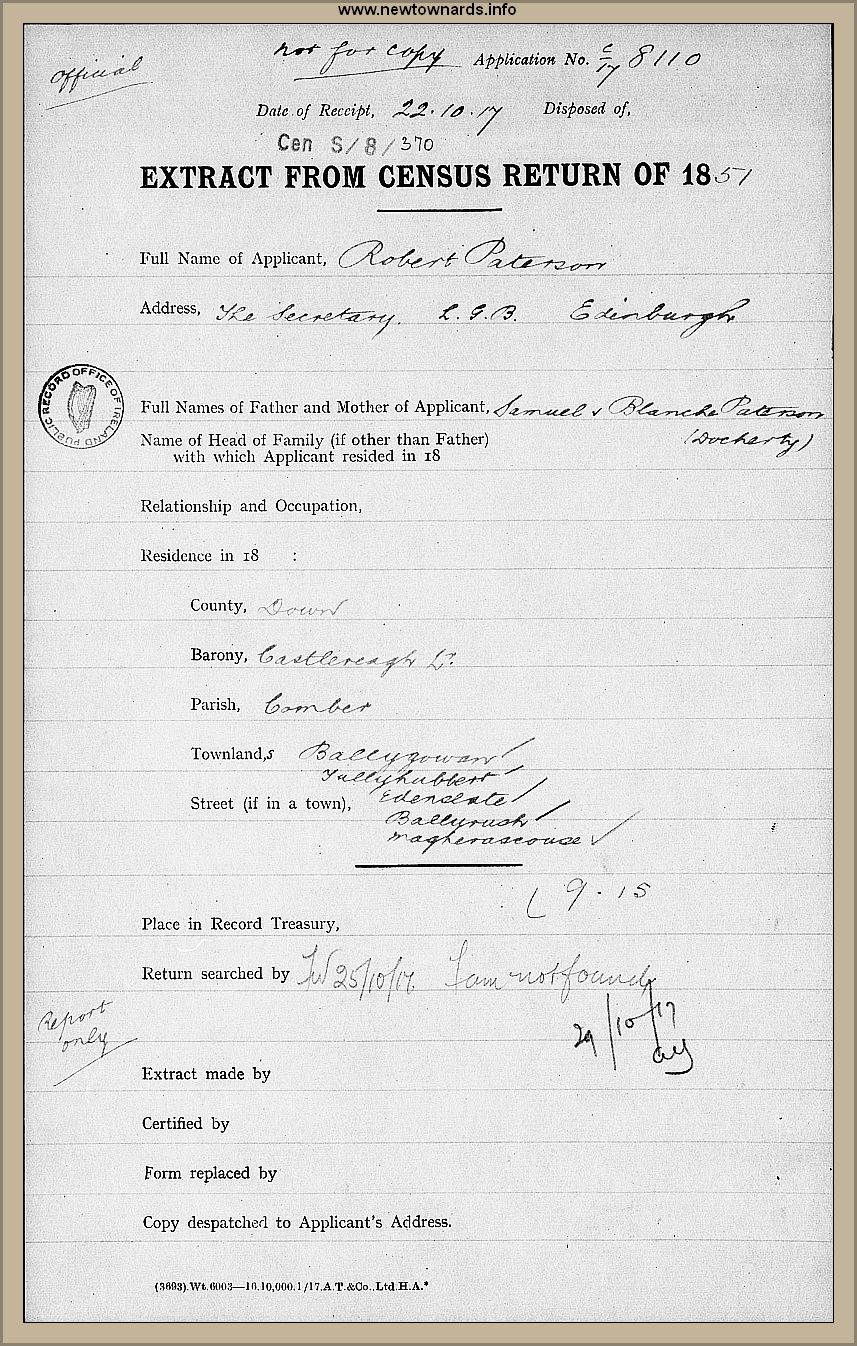 www.newtownards.info
official
not for copy Application No. c/17 8110
Date of Receipt, 22.10.17 Disposed of,
Cen S/8/370
EXTRACT FROM CENSUS RETURN OF 1851
Full Name of Applicant, Robert Paterson
Address, The Secretary. L.G.B. Edinburgh
PUBLIC RECORD OFFICE OF IRELAND
Full Names of Father and Mother of Applicant, Samuel & Blanche Paterson
Name of Head of Family (if other than Father) (Docherty)
with which Applicant resided in 18
Relationship and Occupation,
Residence in 18 :
County, Down
Barony, Castlereagh Lr.
Parish, Comber
Townland,s Ballygowan
Tullyhubbert
Street (if in a town), Edenslate
Ballyrush
Magherascouse
9.15
Place in Record Treasury,
Return searched by 25/10/17 Fam not found
Report
only
29/10/17
Extract made by
Certified by
Form replaced by
Copy despatched to Applicant's Address.
(3693).Wt.6003—16.10,000.1/17.A.T.&Co.,Ltd.H.A.*